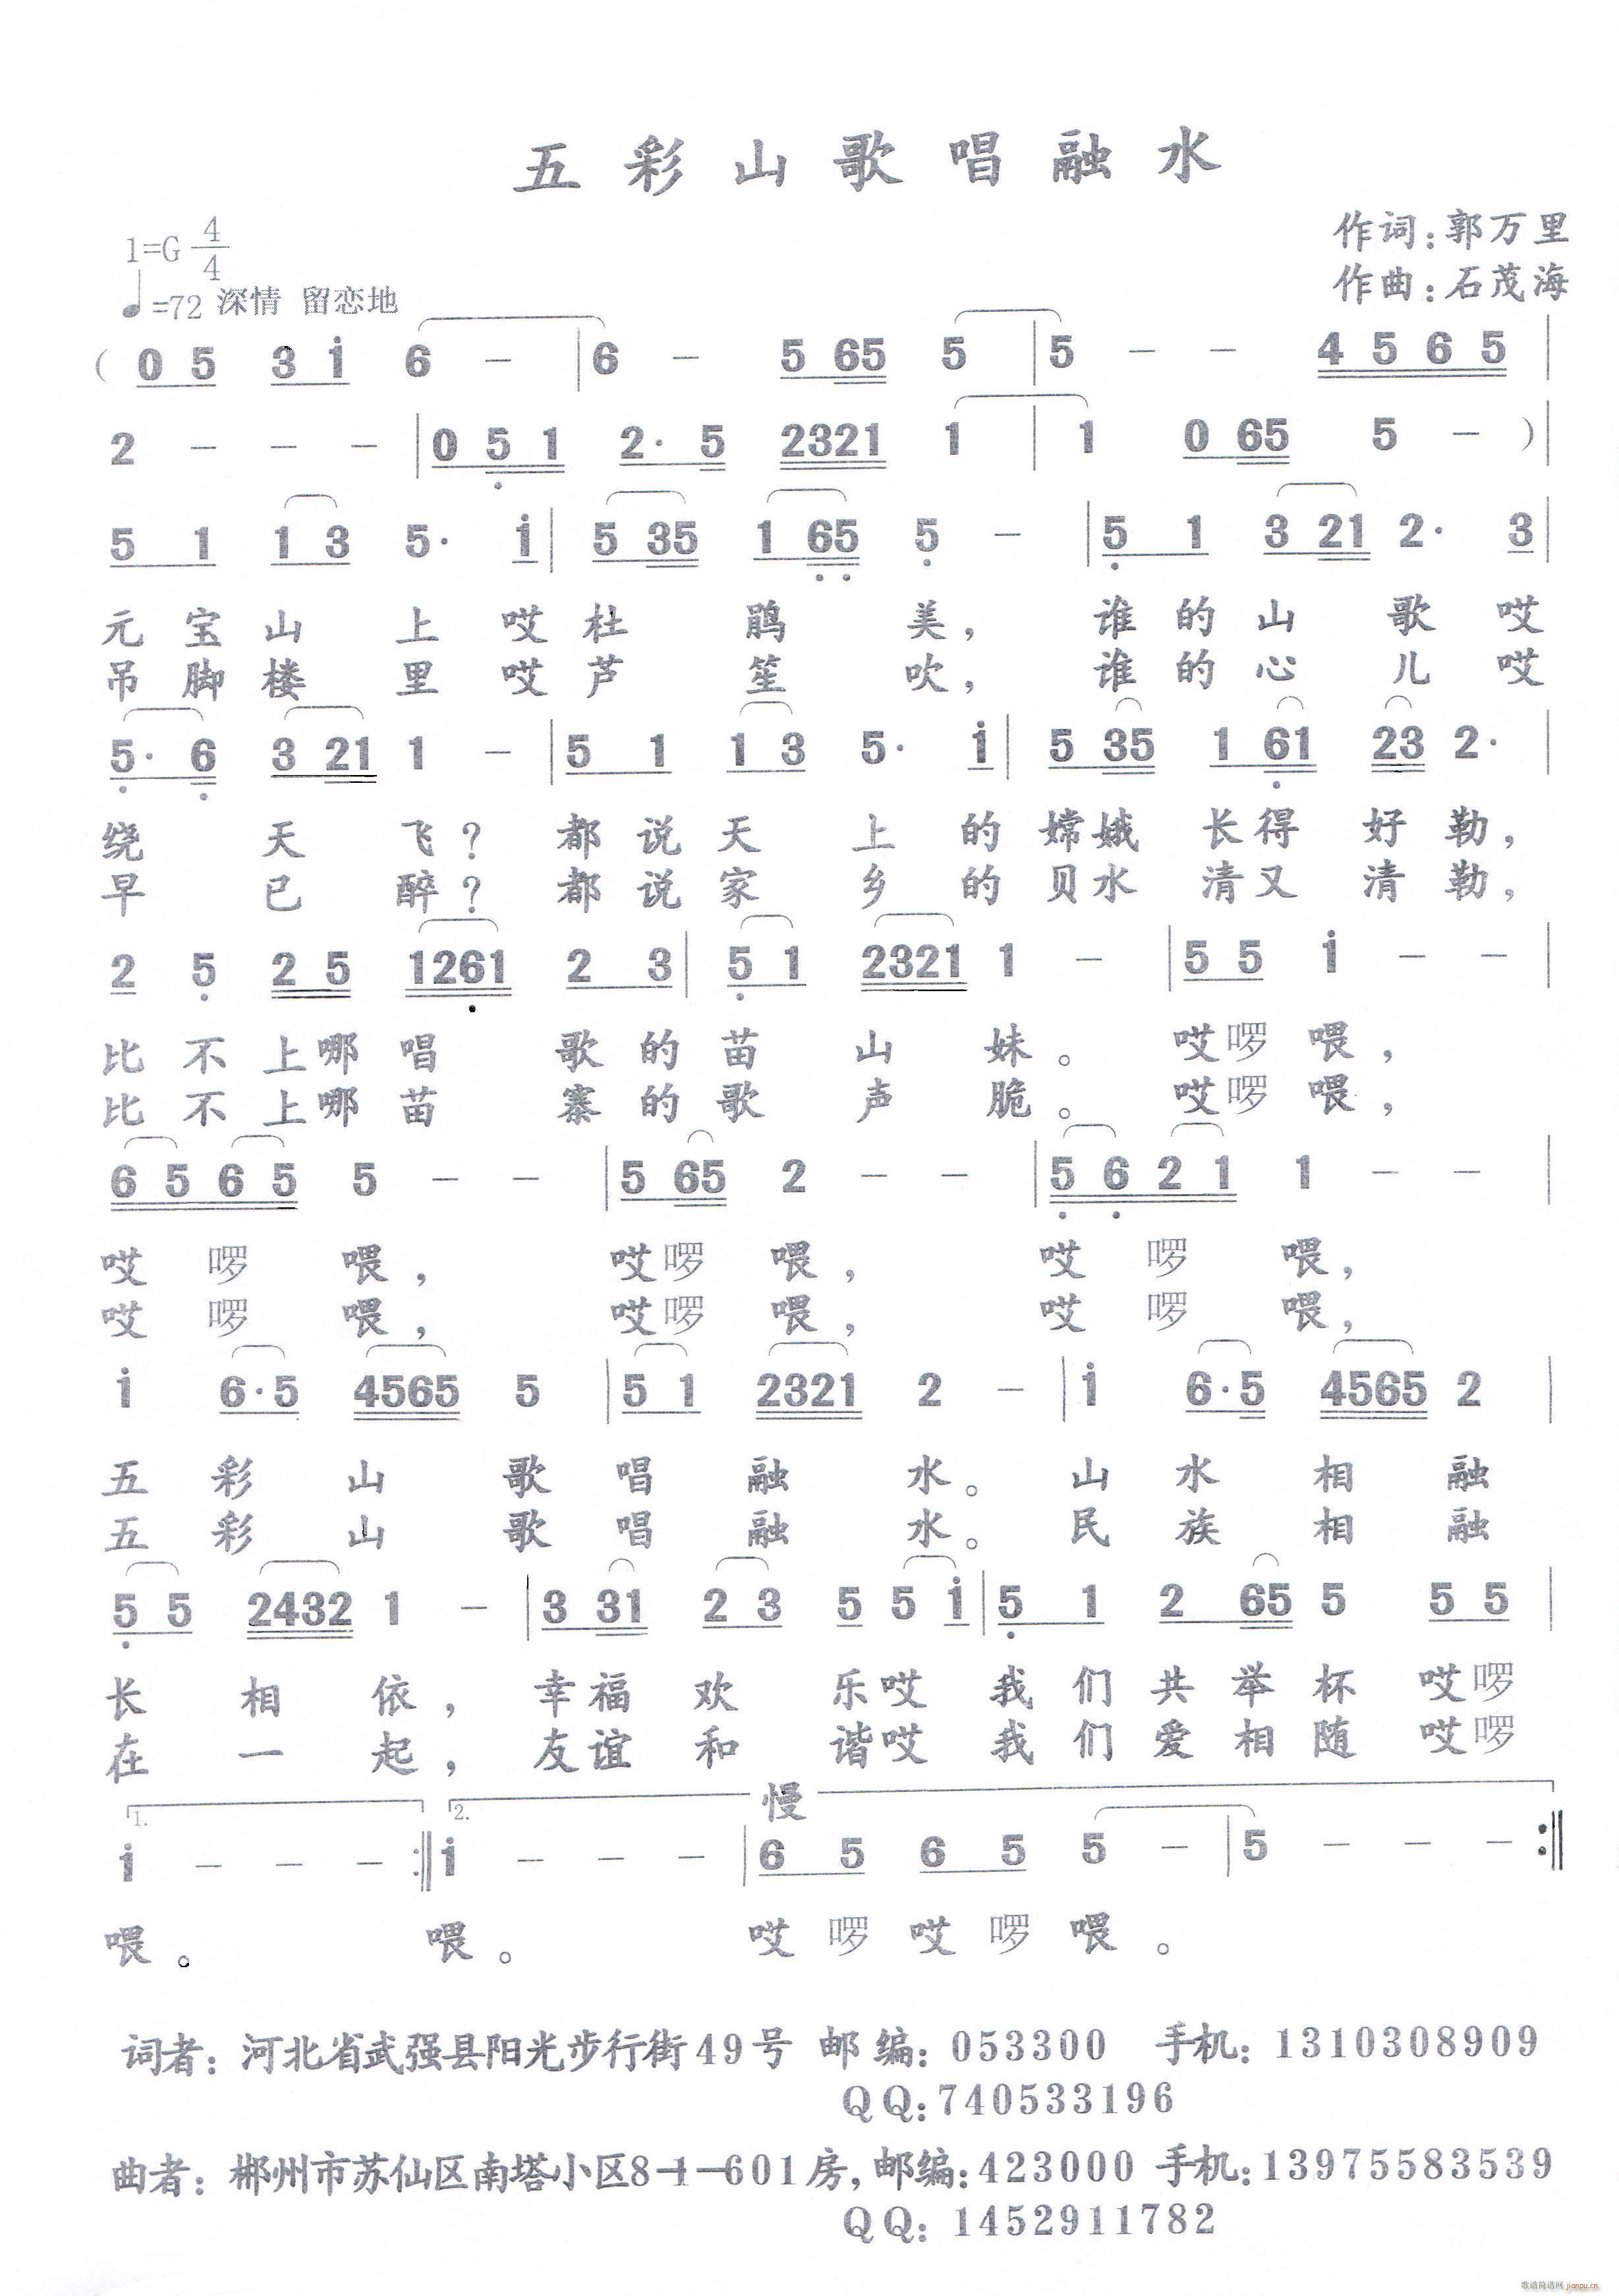 五彩山歌唱融水
1=G 4/4
作词：郭万里
♩=72 深情 留恋地
作曲：石茂海
（0 5 3 i 6 － | 6 － 5 65 5 | 5 － － 4 5 6 5 |
2 － － － | 0 5 1 2· 5 2321 1 | 1 0 65 5 － ）|
5 1 1 3 5· i | 5 35 1 65 5 － | 5 1 3 21 2· 3 |
元宝山 上 哎杜 鹃 美， 谁的山 歌 哎
吊脚楼 里 哎芦 笙 吹， 谁的心 儿 哎
5· 6 3 21 1 － | 5 1 1 3 5· i | 5 35 1 61 23 2· |
绕 天 飞？ 都说天 上 的嫦娥 长得 好勒，
早 已 醉？ 都说家 乡 的贝水 清又 清勒，
2 5 2 5 1261 2 3 | 5 1 2321 1 － | 5 5 i － － |
比不上哪唱 歌的苗 山 妹。 哎啰喂，
比不上哪苗 寨的歌 声 脆。 哎啰喂，
6 5 6 5 5 － － | 5 65 2 － － | 5 6 2 1 1 － － |
哎 啰 喂， 哎啰 喂， 哎 啰 喂，
哎 啰 喂， 哎啰 喂， 哎 啰 喂，
i 6·5 4565 5 | 5 1 2321 2 － | i 6·5 4565 2 |
五 彩 山 歌 唱 融 水。 山 水 相 融
五 彩 山 歌 唱 融 水。 民 族 相 融
5 5 2432 1 － | 3 31 2 3 5 5 i | 5 1 2 65 5 5 5 |
长 相 依， 幸福 欢 乐哎 我们共举杯 哎啰
在 一 起， 友谊 和 谐哎 我们爱相随 哎啰
1. 2. 慢
i － － － :‖ i － － － | 6 5 6 5 5 － | 5 － － － :‖
喂。 喂。 哎啰哎啰喂。
词者：河北省武强县阳光步行街49号 邮编：053300 手机：1310308909
QQ：740533196
曲者：郴州市苏仙区南塔小区8-1-601房，邮编：423000 手机：13975583539
QQ：1452911782
歌谱简谱网 jianpu.cn